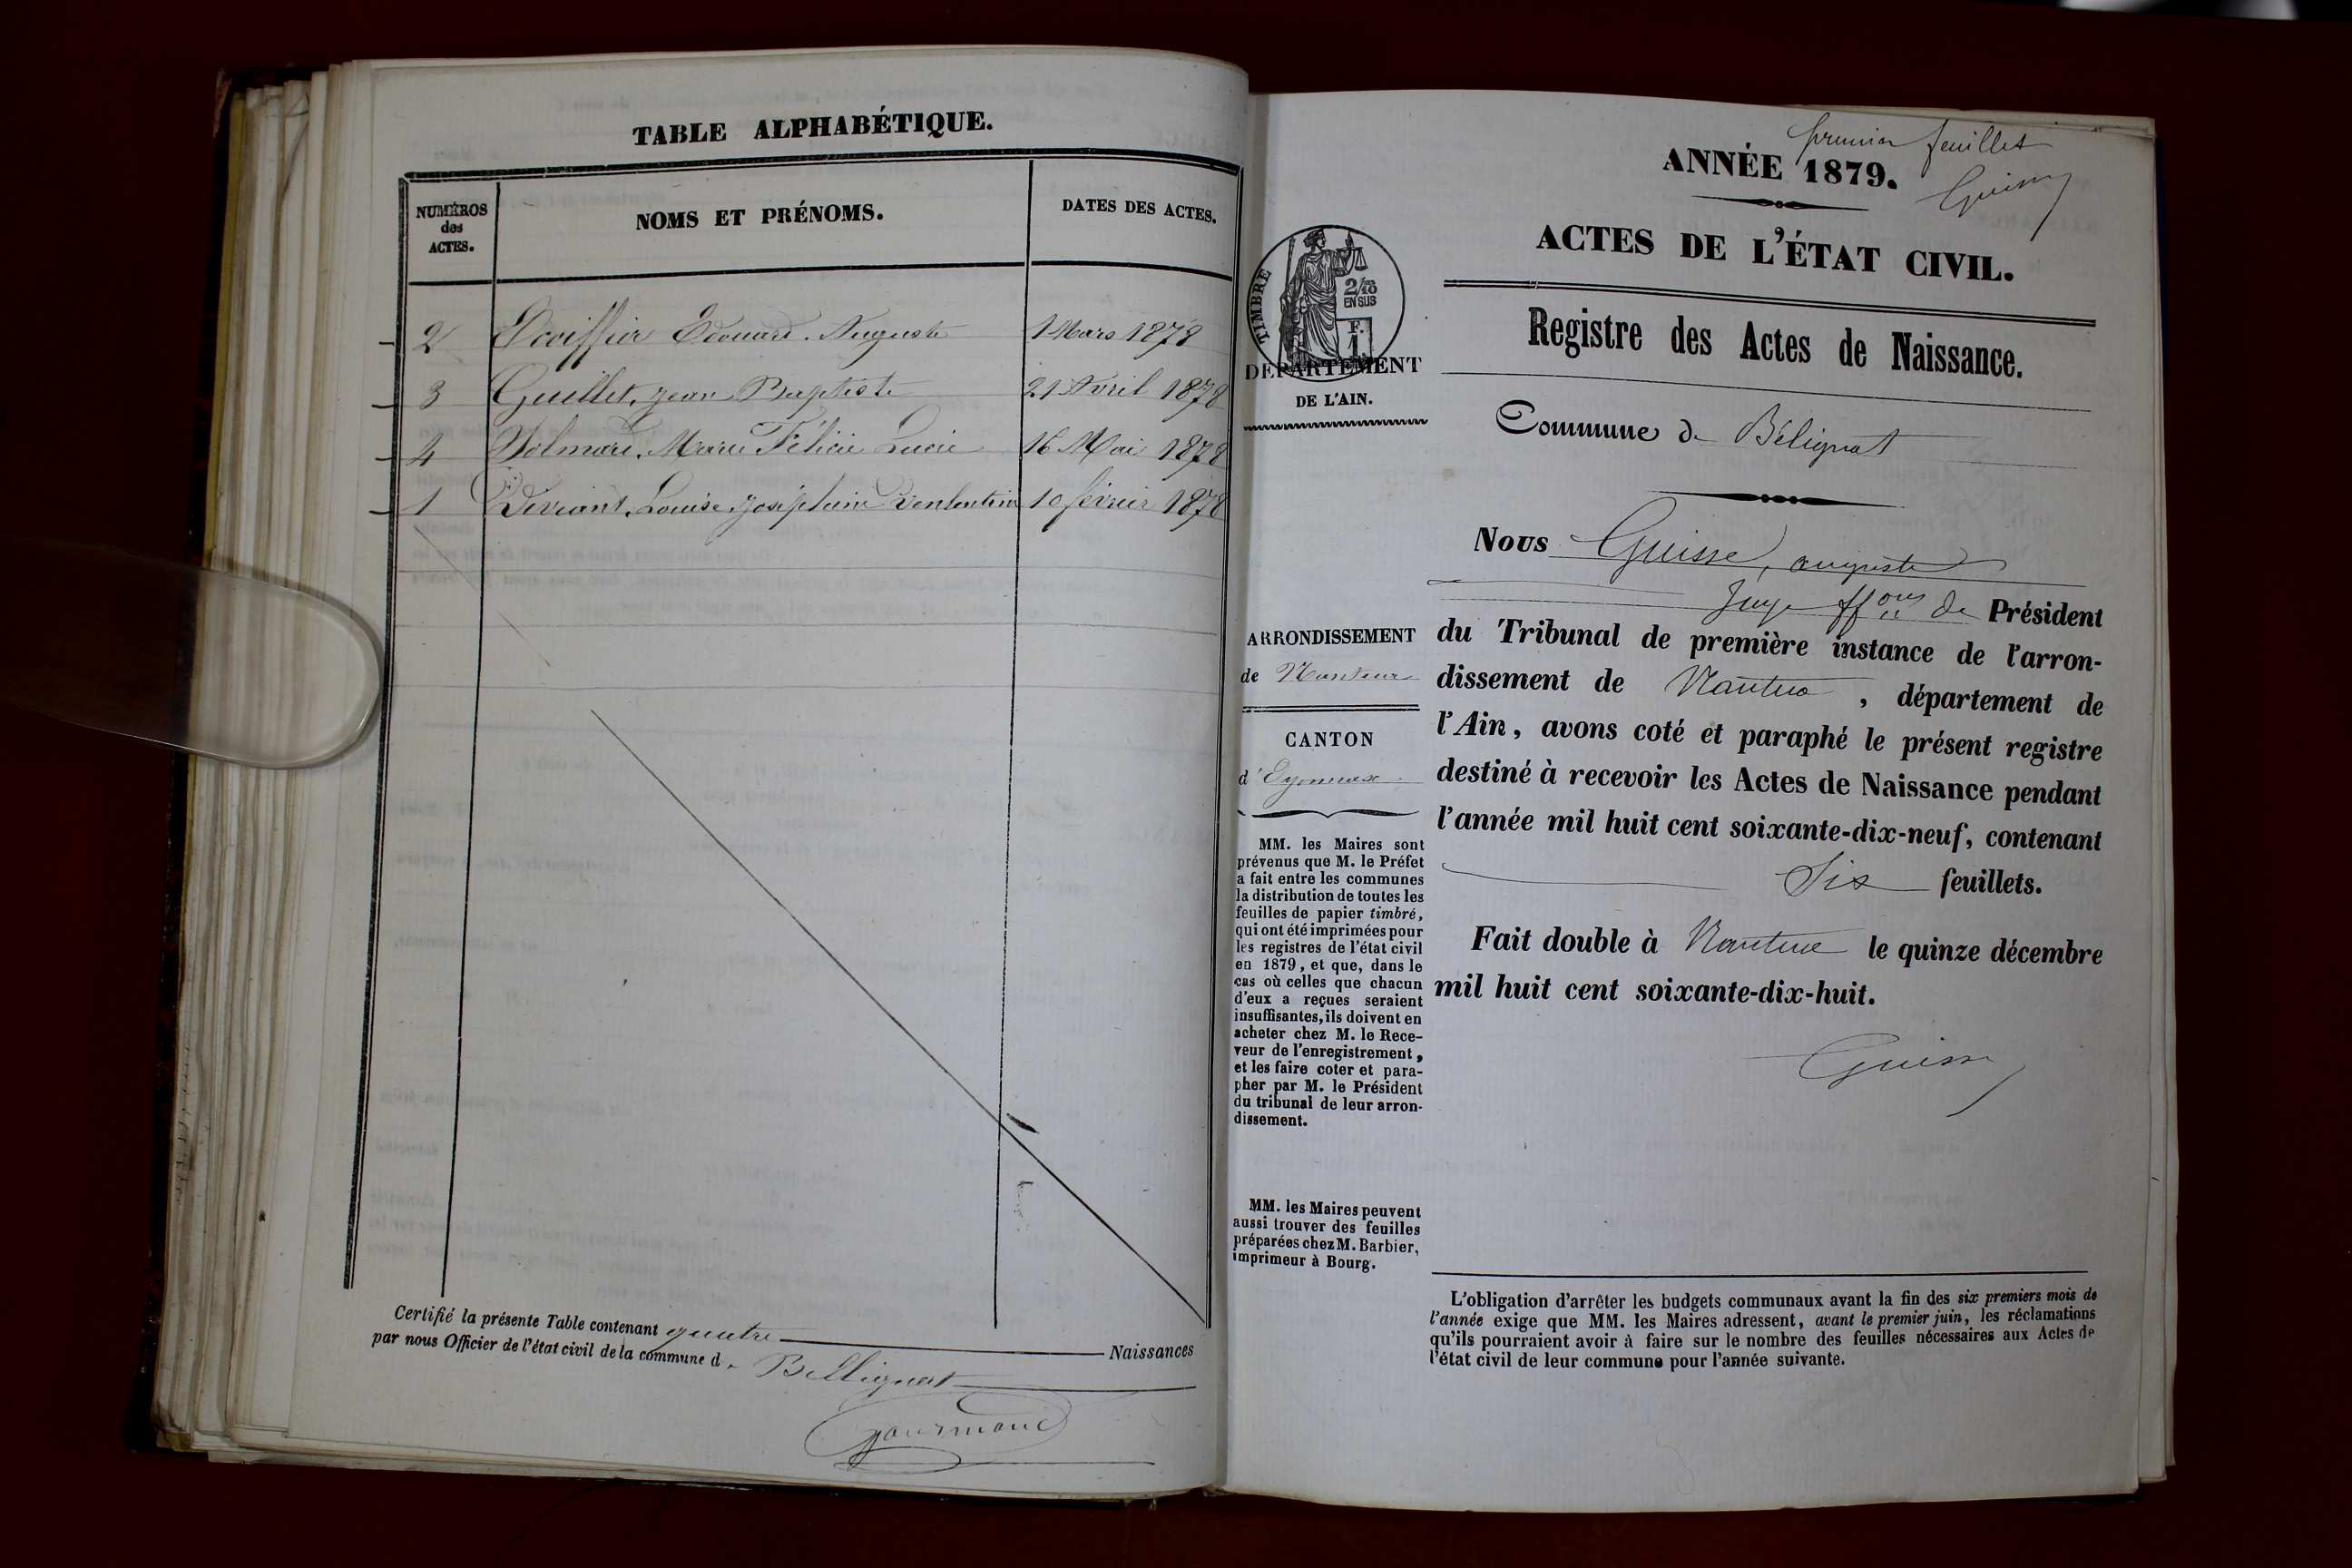 TABLE ALPHABÉTIQUE.
NUMÉROS des ACTES.
NOMS ET PRÉNOMS.
DATES DES ACTES.
2 Edouard. Auguste 1 Mars 1878
3 Guillet, Jean Baptiste 21 Avril 1878
4 Marie Félicie Lucie 16 Mai 1878
1 Louise Joséphine 10 février 1878
Certifié la présente Table contenant quatre Naissances
par nous Officier de l'état civil de la commune de Bellignat
Gourmand
premier feuillet
ANNÉE 1879.
ACTES DE L'ÉTAT CIVIL.
Registre des Actes de Naissance.
Commune de Bélignat
TIMBRE
2/10
EN SUS
F.
1
DÉPARTEMENT
DE L'AIN.
ARRONDISSEMENT
de Nantua
CANTON
d'Oyonnax
MM. les Maires sont
prévenus que M. le Préfet
a fait entre les communes
la distribution de toutes les
feuilles de papier timbré,
qui ont été imprimées pour
les registres de l'état civil
en 1879, et que, dans le
cas où celles que chacun
d'eux a reçues seraient
insuffisantes, ils doivent en
acheter chez M. le Rece-
veur de l'enregistrement,
et les faire coter et para-
pher par M. le Président
du tribunal de leur arron-
dissement.
MM. les Maires peuvent
aussi trouver des feuilles
préparées chez M. Barbier,
imprimeur à Bourg.
Nous Guisse, auguste
Juge ffons de Président
du Tribunal de première instance de l'arron-
dissement de Nantua, département de
l'Ain, avons coté et paraphé le présent registre
destiné à recevoir les Actes de Naissance pendant
l'année mil huit cent soixante-dix-neuf, contenant
Six feuillets.
Fait double à Nantua le quinze décembre
mil huit cent soixante-dix-huit.
L'obligation d'arrêter les budgets communaux avant la fin des six premiers mois de
l'année exige que MM. les Maires adressent, avant le premier juin, les réclamations
qu'ils pourraient avoir à faire sur le nombre des feuilles nécessaires aux Actes de
l'état civil de leur commune pour l'année suivante.